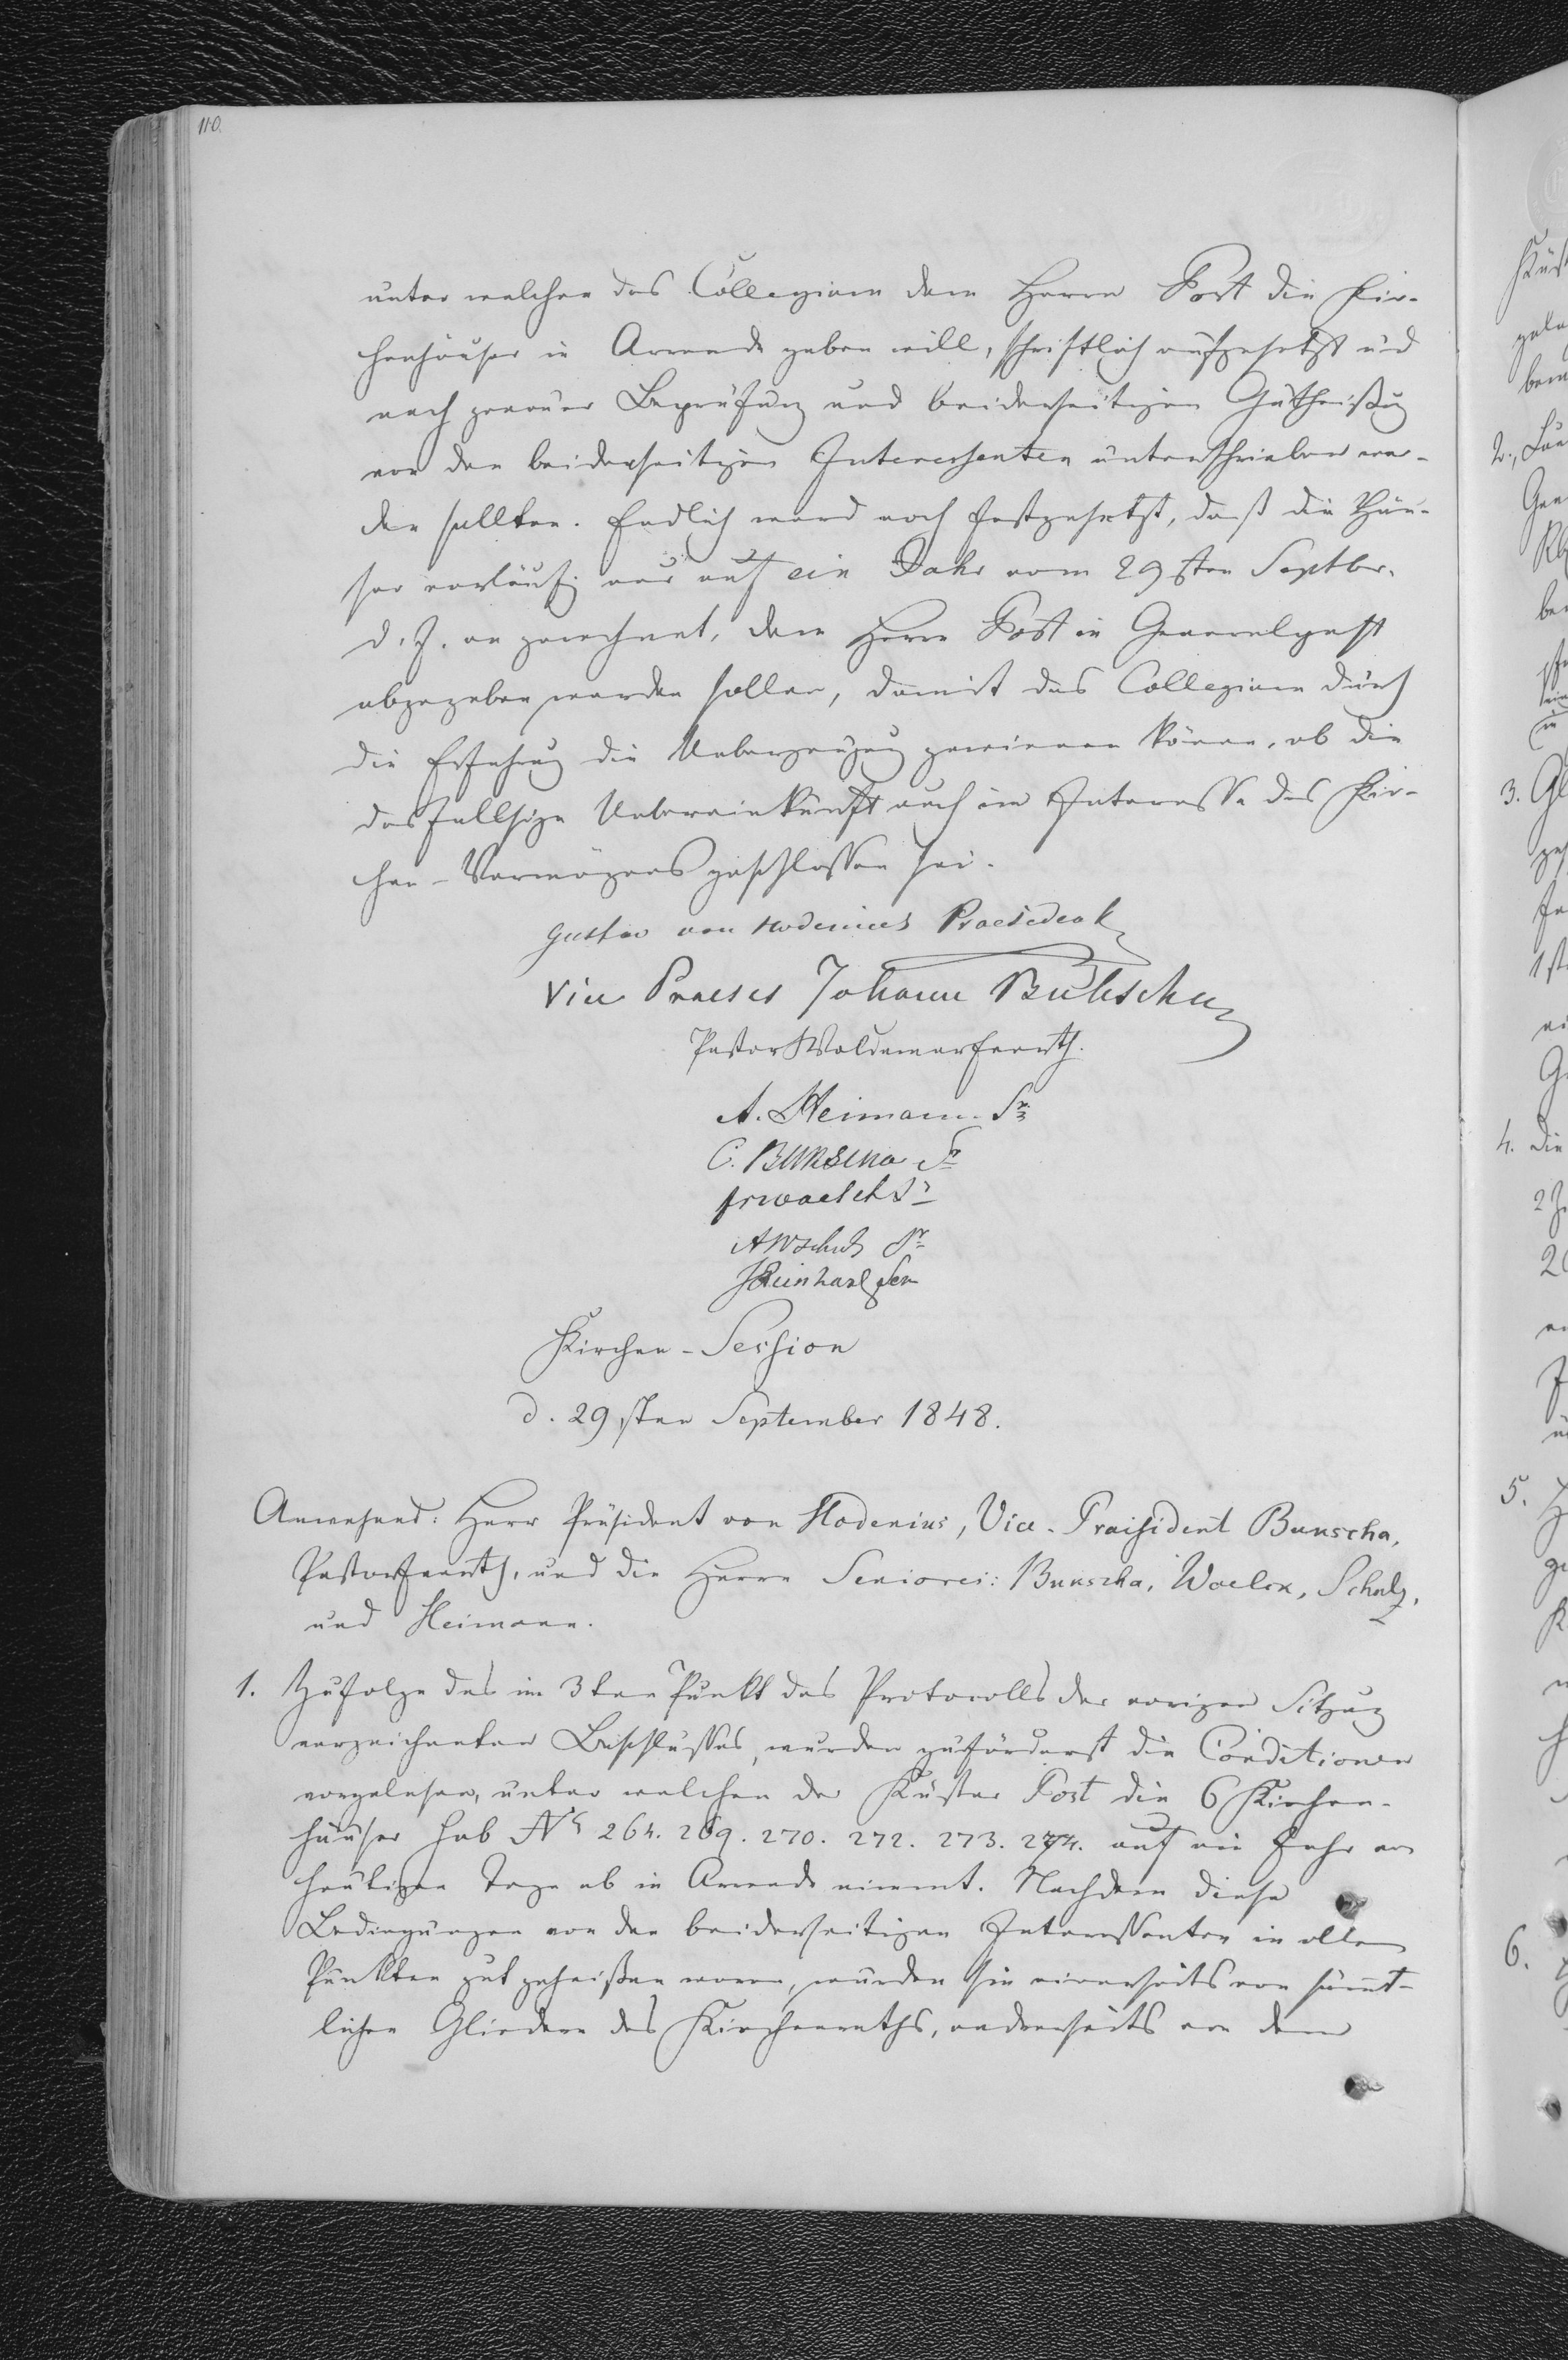 110.
unter welchen das Collegium dem Herrn Post die Kir-
chenhäuser in Arrende geben will, schriftlich aufgesetzt und
nach genauer Beprüfung und beiderseitigen Gutheißung
von den beiderseitigen Interessenten unterschrieben wer-
den sollten. Endlich ward noch festgesetzt, daß die Häu-
ser vorläufig nur auf ein Jahr vom 29sten Septbr.
d. J. an gerechnet, dem Herrn Post in Generalpacht
abgegeben werden sollen, damit das Collegium durch
die Erfahrung die Ueberzeugung gewinnen könne, ob die
desfallsige Uebereinkunft auch im Interesse des Kir-
chen-Vermögens geschlossen sei.
Gustav von Hodenius Praesedent
Vice Praeses Johann Bukscha
Pastor Woldemar Ferrth.
A. Heimann. Sr.
C. Bunscha Sr
Woelck Sr
AWSchulz Sr
JReinhard Sen
Kirchen-Session
d. 29sten September 1848.
Anwesend: Herr Präsident von Hodenius, Vice-Praisident Bunscha,
Pastor Ferrth, und die Herrn Seniores: Bunscha, Woelck, Schulz,
und Heimann.
1. Zufolge des im 3ten Punkt des Protocolls der vorigen Sitzung
verzeichneten Beschlusses, wurden zuförderst die Conditionen
vorgelesen, unter welchen der Küster Post die 6 Kirchen-
häuser sub No 264. 269. 270. 272. 273. 274. auf ein Jahr vom
heutigen Tage ab in Arrende nimmt. Nachdem diese
Bedingungen von den beiderseitigen Interessenten in allen
Punkten gut geheißen waren, wurden sie einerseits von sämmt-
lichen Gliedern des Kirchenraths, anderseits von dem
2.
3.
4. Die
5.
6.